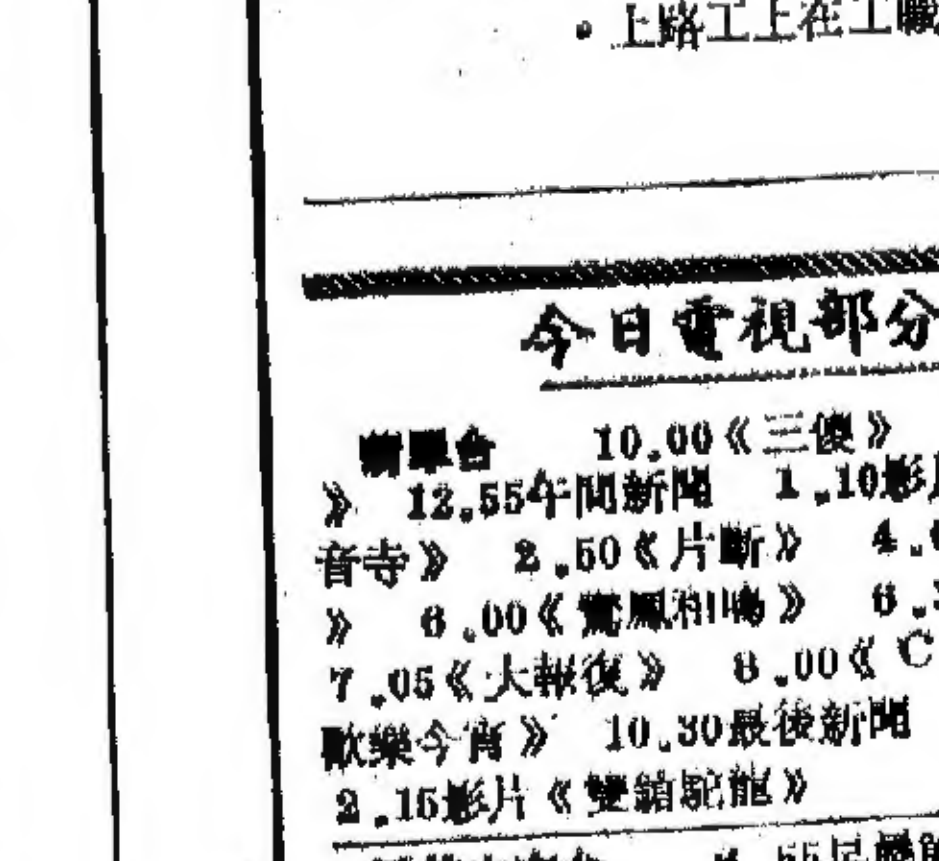 。上路工上在工職
今日電視部分
10.00《三傻》
》 12.55午間新聞 1.10影片
音寺》 2.50《片斷》 4.
》 6.00《鸞鳳和鳴》 6.
7.05《大報復》 8.00《C
歡樂今宵》 10.30最後新聞
2.15影片《雙鎖駝龍》